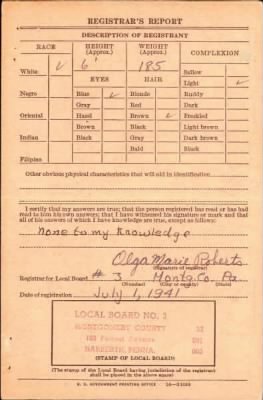 REGISTRAR'S REPORT
DESCRIPTION OF REGISTRANT
RACE HEIGHT (Approx.) WEIGHT (Approx.) COMPLEXION
White ✓ 6' 185 Sallow
EYES HAIR Light ✓
Negro Blue ✓ Blonde Ruddy
Gray Red Dark
Oriental Hazel Brown ✓ Freckled
Brown Black Light brown
Indian Black Gray Dark brown
Bald Black
Filipino
Other obvious physical characteristics that will aid in identification
I certify that my answers are true; that the person registered has read or has had
read to him his own answers; that I have witnessed his signature or mark and that
all of his answers of which I have knowledge are true, except as follows:
None to my Knowledge
Olga Marie Roberts
(Signature of registrar)
Registrar for Local Board # 3 Montg. Co. Pa.
(Number) (City or county) (State)
Date of registration July 1, 1941
LOCAL BOARD NO. 3
MONTGOMERY COUNTY
NARBERTH, PENNA.
(STAMP OF LOCAL BOARD)
(The stamp of the Local Board having jurisdiction of the registrant
shall be placed in the above space)
U. S. GOVERNMENT PRINTING OFFICE